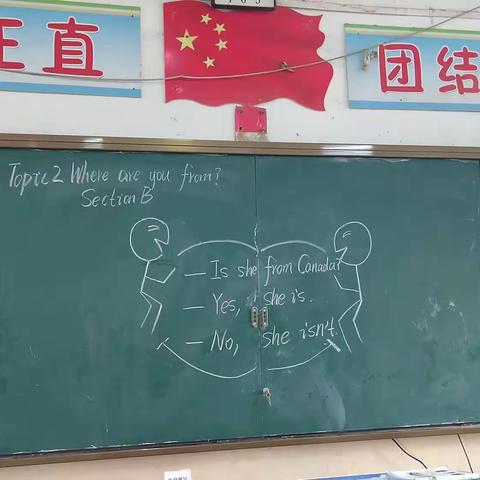 正直
团结
Topic 2 Where are you from?
Section B
— Is she from Canada?
— Yes, she is.
— No, she isn't.